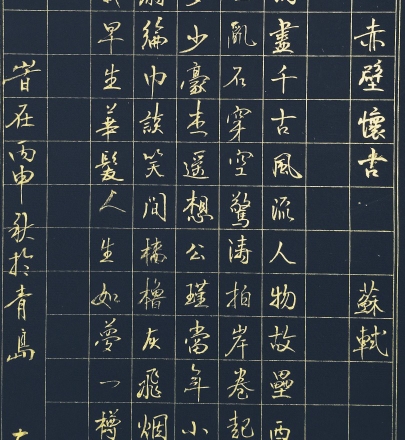 赤壁懷古 蘇軾
盡千古風流人物故壘西
亂石穿空驚濤拍岸卷起
少豪杰遥想公瑾當年小
綸巾談笑間檣櫓灰飛烟
早生華髮人生如夢一樽
旹在丙申秋於青島